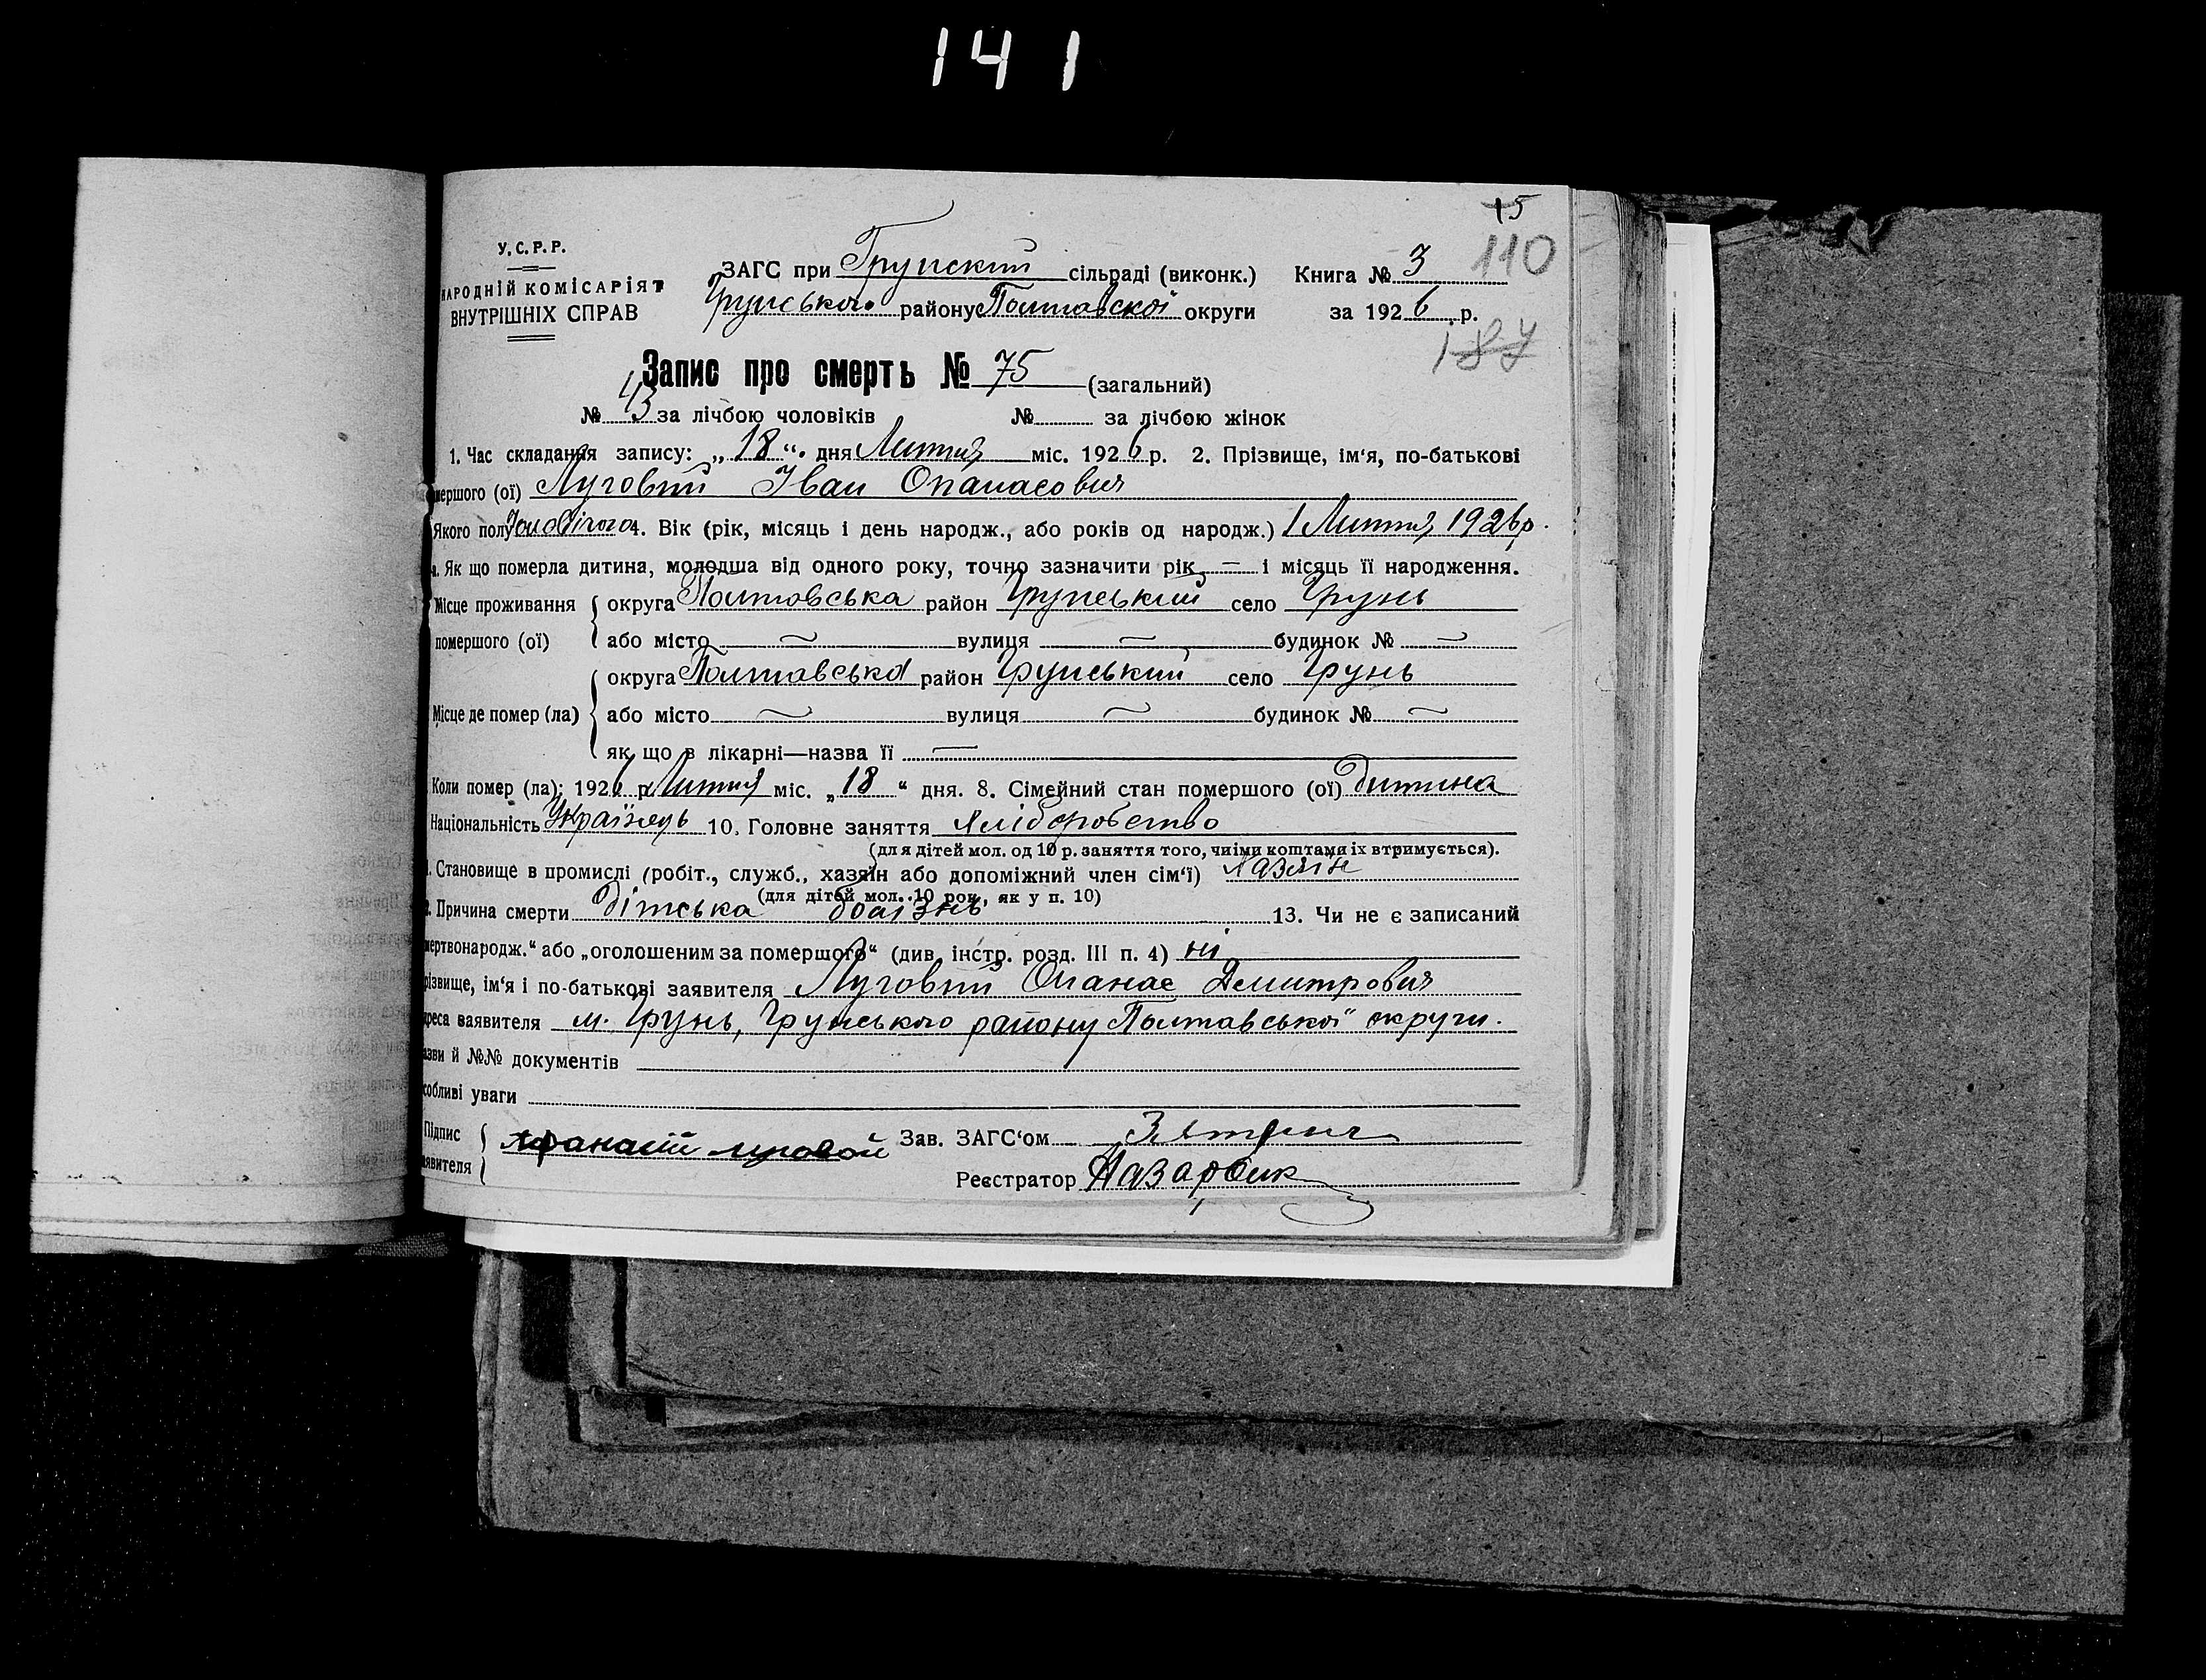 141
15
110
У.С.Р.Р.
НАРОДНІЙ КОМІСАРІЯТ
ВНУТРІШНІХ СПРАВ
ЗАГС при Грунский сільраді (виконк.) Книга № 3
Грунського району Полтавскої округи за 1926 р.
187
Запис про смерть № 75 (загальний)
№ 43 за лічбою чоловіків № за лічбою жінок
1. Час складання запису: „18“ дня Лютня міс. 1926 р. 2. Прізвище, ім‘я, по-батькові
мершого (ої) Луговий Іван Опанасович
Якого полу 4. Вік (рік, місяць і день народж., або років од народж.) 1 Лютня 1926 р.
Як що померла дитина, молодша від одного року, точно зазначити рік — і місяць її народження.
Місце проживання округа Полтовська район Грунський село Грунь
помершого (ої) або місто ~ вулиця ~ будинок № ~
округа Полтавська район Грунський село Грунь
Місце де помер (ла) або місто ~ вулиця ~ будинок № ~
як що в лікарні—назва її —
Коли помер (ла): 1926 р. Лютня міс. „18“ дня. 8. Сімейний стан помершого (ої) дитина
Національність Українець 10. Головне заняття хліборобство
(для дітей мол. од 10 р. заняття того, чиїми коштами їх втримується).
1. Становище в промислі (робіт., служб., хазяїн або допоміжний член сім‘ї) хазяїн
(для дітей мол. 10 рок, як у п. 10)
2. Причина смерти дітська болізнь 13. Чи не є записаний
мертвонародж.“ або „оголошеним за помершого“ (див. інстр. розд. III п. 4) ні
різвище, ім‘я і по-батькові заявителя Луговий Опанас Демитрович
дреса заявителя м. Грунь, Грунського району Полтавської округи.
азви й №№ документів
собливі уваги
Підпис Афанасий луговой Зав. ЗАГС‘ом
аявителя Реєстратор